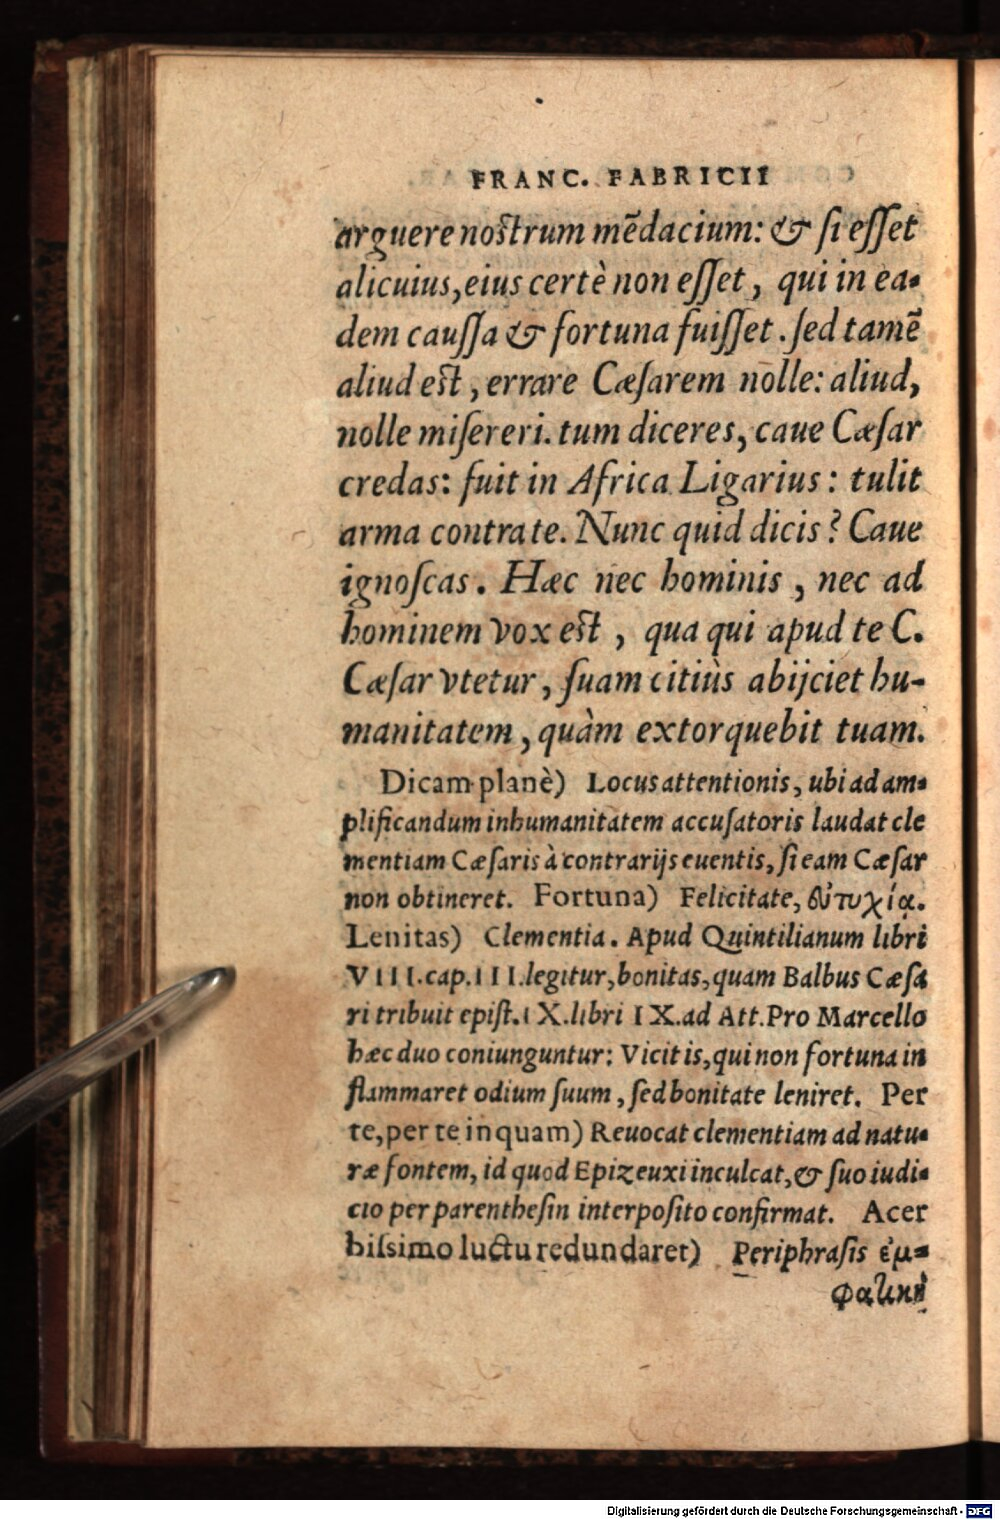 FRANC. FABRICII
arguere nostrum mẽdacium: & si esset
alicuius, eius certè non esset, qui in ea-
dem caussa & fortuna fuisset. sed tamẽ
aliud est, errare Cæsarem nolle: aliud,
nolle misereri. tum diceres, caue Cæsar
credas: fuit in Africa Ligarius: tulit
arma contra te. Nunc quid dicis? Caue
ignoscas. Hæc nec hominis, nec ad
hominem vox est, qua qui apud te C.
Cæsar vtetur, suam citiùs abijciet hu-
manitatem, quàm extorquebit tuam.
Dicam planè) Locus attentionis, ubi ad am-
plificandum inhumanitatem accusatoris laudat cle
mentiam Cæsaris à contrarijs euentis, si eam Cæsar
non obtineret. Fortuna) Felicitate, εὐτυχίᾳ.
Lenitas) Clementia. Apud Quintilianum libri
VIII. cap. III. legitur, bonitas, quam Balbus Cæsa
ri tribuit epist. IX. libri IX. ad Att. Pro Marcello
hæc duo coniunguntur: Vicit is, qui non fortuna in
flammaret odium suum, sed bonitate leniret. Per
te, per te inquam) Reuocat clementiam ad natu-
ræ fontem, id quod Epizeuxi inculcat, & suo iudi-
cio per parenthesin interposito confirmat. Acer
bissimo luctu redundaret) Periphrasis ἐμ-
φατικὴ
Digitalisierung gefördert durch die Deutsche Forschungsgemeinschaft - DFG